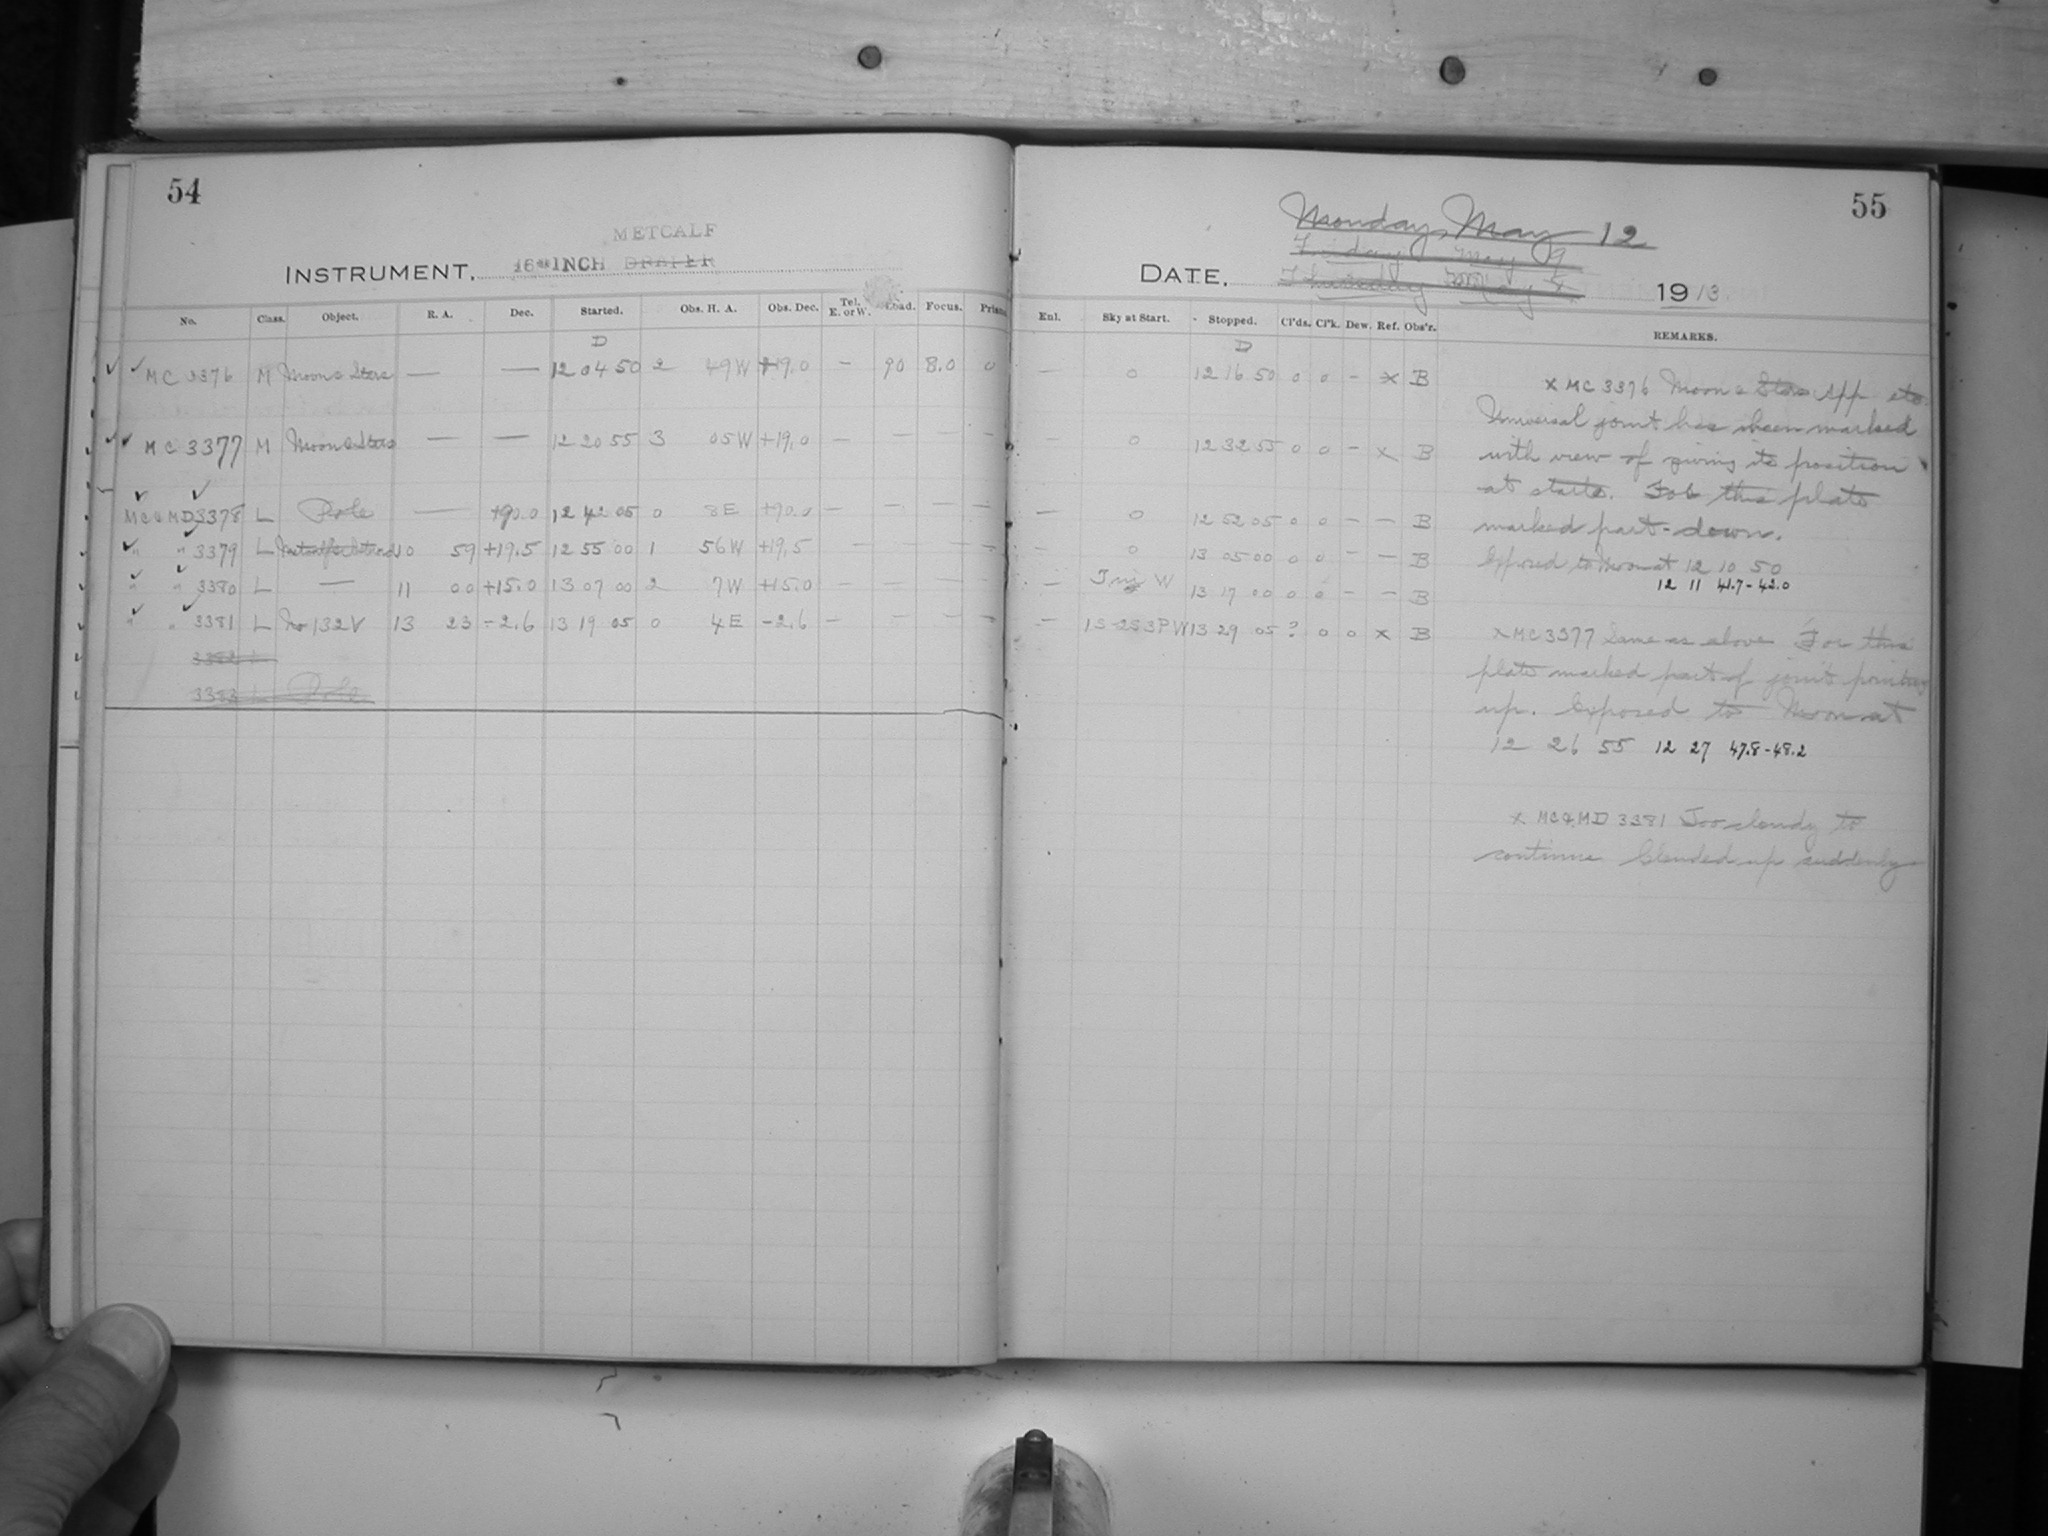 54
METCALF
INSTRUMENT, 16 INCH DRAPER
No. Class. Object. R. A. Dec. Started. Obs. H. A. Obs. Dec. Tel. E. or W. Load. Focus. Prism
D
MC 3376 M Moon & Stars — — 12 04 50 2 49 W +19.0 — 90 8.0 0
MC 3377 M Moon & Stars — — 12 20 55 3 05 W +19.0 — — — —
MC & MD 3378 L Pole — +90.0 12 42 05 0 8 E +90.0 — — — —
" " 3379 L 10 59 +19.5 12 55 00 1 56 W +19.5 — — — —
" " 3380 L — 11 00 +15.0 13 07 00 2 7 W +15.0 — — — —
" " 3381 L No 132 V 13 23 -2.6 13 19 05 0 4 E -2.6 — — — —
3382 L
3383 L Pole
55
Monday, May 12
Friday May 9
Thursday May 8
DATE, 1913
Enl. Sky at Start. Stopped. Cl'ds. Cl'k. Dew. Ref. Obs'r. REMARKS.
D
— 0 12 16 50 0 0 — x B
— 0 12 32 55 0 0 — x B
— 0 12 52 05 0 0 — — B
— 0 13 05 00 0 0 — — B
— W 13 17 00 0 0 — — B
— 1S-2S3PW 13 29 05 ? 0 0 x B
x MC 3376 Moon & Stars App etc.
Universal joint has been marked
with view of giving its position
at starts. For this plate
marked part down.
Exposed to Moon at 12 10 50
12 11 41.7-42.0
x MC 3377 Same as above For this
plate marked part of joint pointing
up. Exposed to Moon at
12 26 55 12 27 47.8-48.2
x MC & MD 3381 Too cloudy to
continue Clouded up suddenly